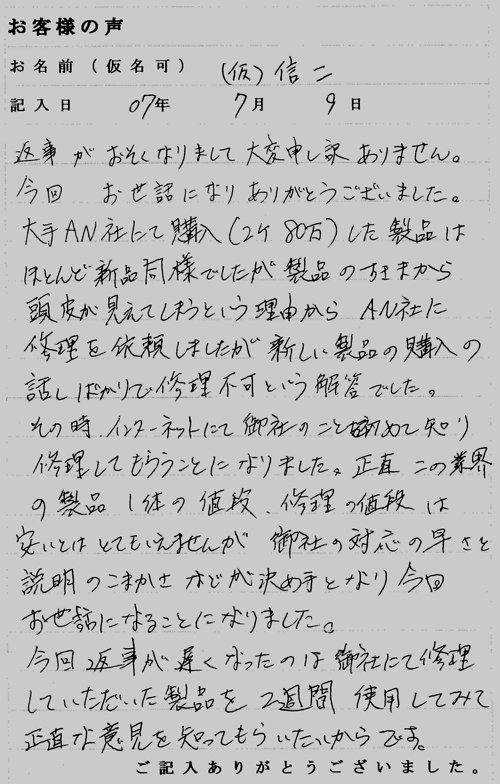 お客様の声
お名前（仮名可） (仮)信二
記入日 07年 7月 9日
返事がおそくなりまして大変申し訳ありません。
今回 お世話になりありがとうございました。
大手AN社にて購入(2ケ80万)した製品は
ほとんど新品同様でしたが製品のすきまから
頭皮が見えてしまうという理由からAN社に
修理を依頼しましたが新しい製品の購入の
話しばかりで修理不可という解答でした。
その時、インターネットにて御社のこと始めて知り
修理してもらうことになりました。正直この業界
の製品1体の値段、修理の値段は
安いとはとてもいえませんが 御社の対応の早さと
説明のこまかさなどが決め手となり今回
お世話になることになりました。
今回返事が遅くなったのは御社にて修理
していただいた製品を2週間 使用してみて
正直な意見を知ってもらいたいからです。
ご記入ありがとうございました。